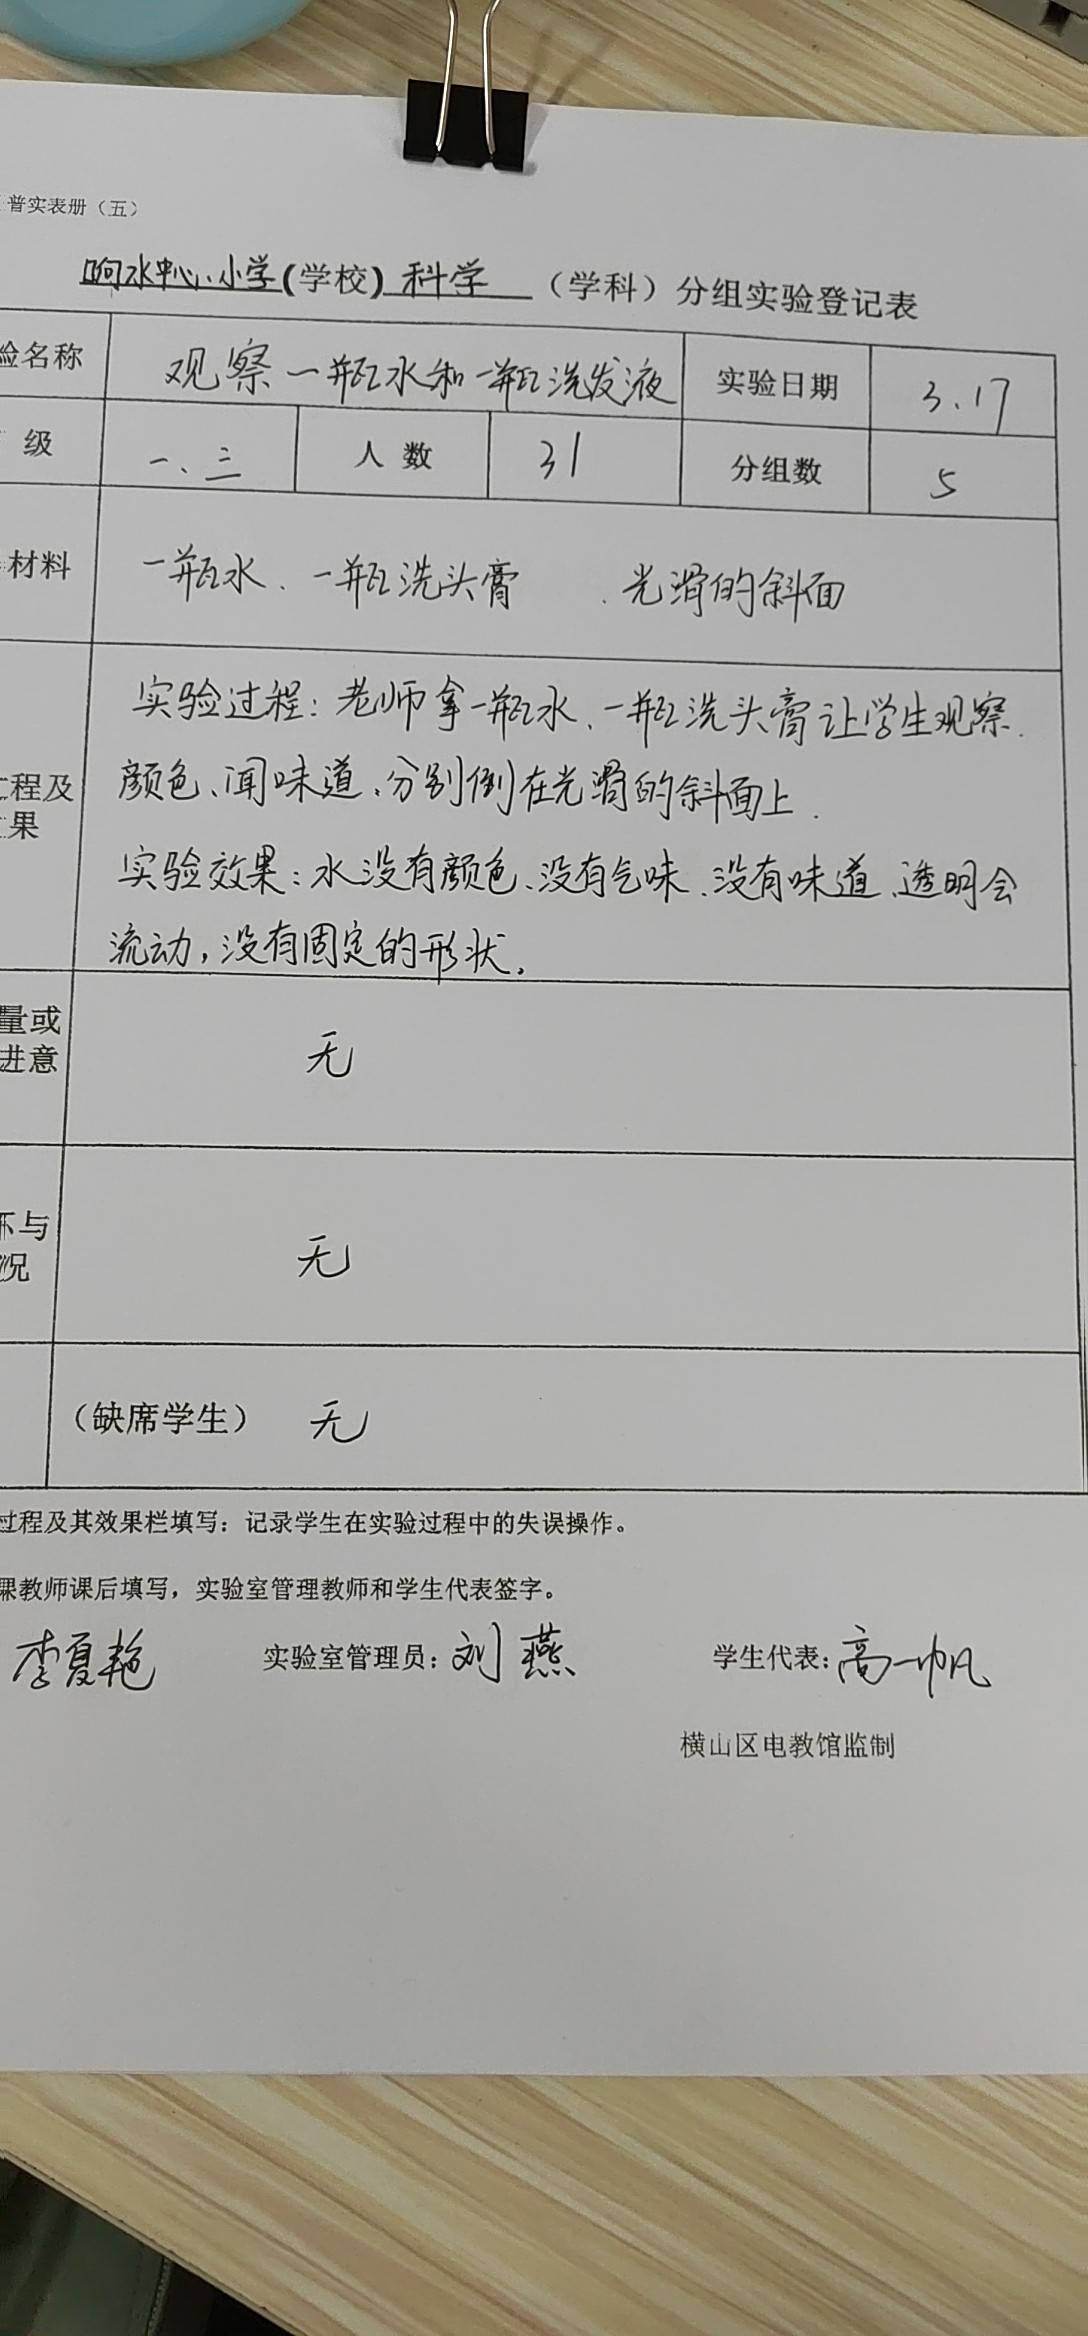 普实表册（五）
响水中心小学(学校) 科学 （学科）分组实验登记表
验名称 观察一瓶水和一瓶洗发液 实验日期 3.17
级 一、三 人数 31 分组数 5
材料 一瓶水、一瓶洗头膏 、光滑的斜面
实验过程：老师拿一瓶水、一瓶洗头膏让学生观察.
程及 颜色、闻味道、分别倒在光滑的斜面上.
果
实验效果：水没有颜色、没有气味、没有味道、透明会
流动，没有固定的形状。
量或
进意 无
坏与
况 无
（缺席学生） 无
过程及其效果栏填写：记录学生在实验过程中的失误操作。
课教师课后填写，实验室管理教师和学生代表签字。
李夏艳 实验室管理员：刘燕 学生代表：高一帆
横山区电教馆监制